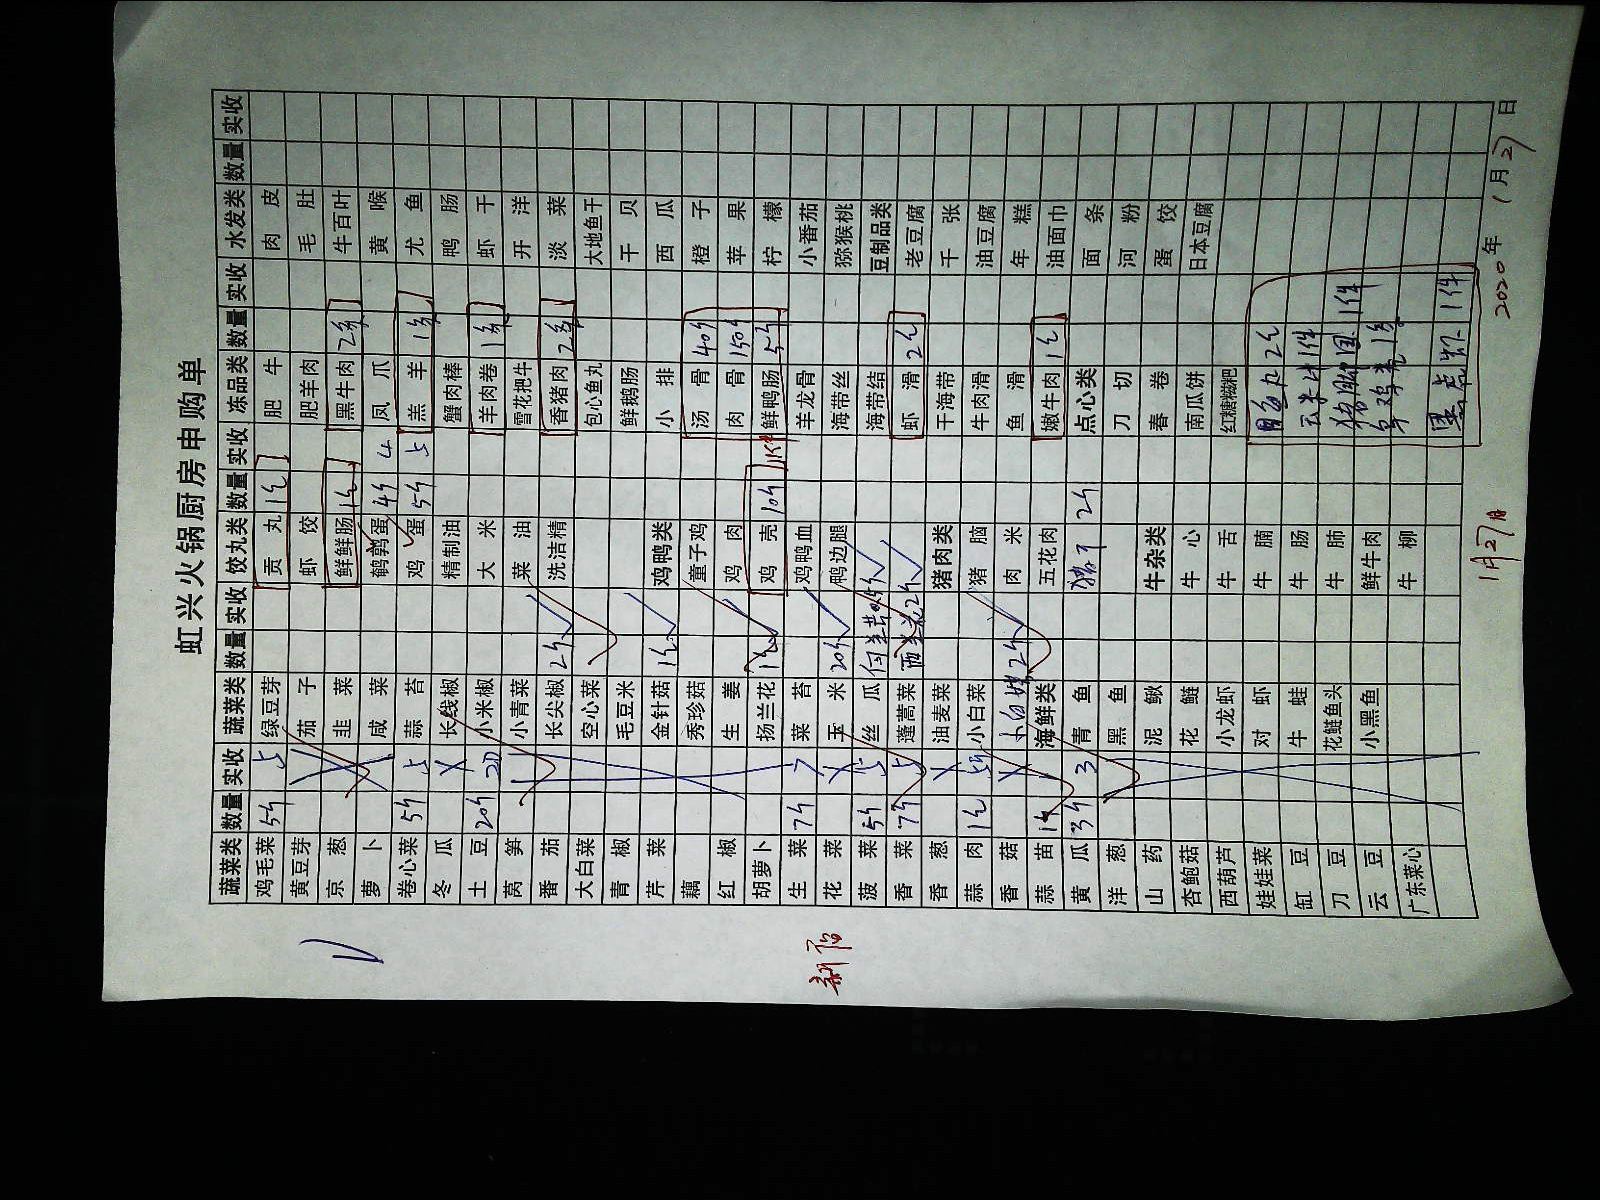 虹兴火锅厨房申购单
蔬菜类 数量 实收 蔬菜类 数量 实收 饺丸类 数量 实收 冻品类 数量 实收 水发类 数量 实收
鸡毛菜 5斤 5 绿豆芽 贡丸 1包 肥牛 肉皮
黄豆芽 茄子 虾饺 肥羊肉 毛肚
京葱 韭菜 鲜鲜肠 1包 黑牛肉 2条 牛百叶
萝卜 咸菜 鹌鹑蛋 4斤 4 凤爪 黄喉
卷心菜 5斤 5 蒜苔 鸡蛋 5斤 5 羔羊 1条 尤鱼
冬瓜 长线椒 精制油 蟹肉棒 鸭肠
土豆 20斤 20 小米椒 大米 羊肉卷 1条 虾干
莴笋 小青菜 菜油 雪花把牛 开洋
番茄 长尖椒 2斤 洗洁精 香猪肉 2条 淡菜
大白菜 空心菜 包心鱼丸 大地鱼干
青椒 毛豆米 鲜鹅肠 干贝
芹菜 金针菇 1包 鸡鸭类 小排 西瓜
藕 秀珍菇 童子鸡 汤骨 40斤 橙子
红椒 生姜 鸡肉 肉骨 150斤 苹果
胡萝卜 扬兰花 鸡壳 10斤 鲜鸭肠 5斤 柠檬
生菜 7斤 7 菜苔 鸡鸭血 羊龙骨 小番茄
花菜 玉米 20斤 鸭边腿 海带丝 猕猴桃
菠菜 5斤 5 丝瓜 海带结 豆制品类
香菜 7斤 5 蓬蒿菜 西兰花2斤 虾滑 2包 老豆腐
香葱 油麦菜 猪肉类 干海带 千张
蒜肉 1包 小白菜 猪脑 牛肉滑 油豆腐
香菇 2斤 肉米 鱼滑 年糕
蒜苗 1斤 1 海鲜类 五花肉 嫩牛肉 1包 油面巾
黄瓜 3斤 3 青鱼 猪肝 2斤 点心类 面条
洋葱 黑鱼 刀切 河粉
山药 泥鳅 牛杂类 春卷 蛋饺
杏鲍菇 花鲢 牛心 南瓜饼 日本豆腐
西葫芦 小龙虾 牛舌 红糖糍粑
娃娃菜 对虾 牛腩 鱼丸 2包
缸豆 牛蛙 牛肠 1件
刀豆 花鲢鱼头 牛肺 1件
云豆 小黑鱼 鲜牛肉
广东菜心 牛柳
黑虎虾 1件
2020年1月27日
1月27日